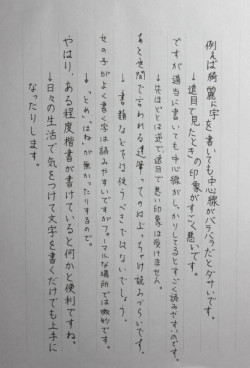 例えば綺麗に字を書いても中心線がバラバラだとダサいです。
→遠目で見たとき の印象がすごく悪いです。
ですが適当に書いても中心線がしっかりしてるとすごく読みやすいのです。
→先ほどとは逆で、遠目で悪い印象は受けません。
あと世間で言われる達筆ってのはぶっちゃけ読みづらいです。
→書類などでは使うべきではないでしょう。
女の子がよく書く字は読みやすいですがフォーマルな場所では微妙です。
→「とめ」「はね」が無かったりするので。
やはり、ある程度楷書が書けていると何かと便利ですね。
→日々の生活で気をつけて文字を書くだけでも上手に
なったりします。